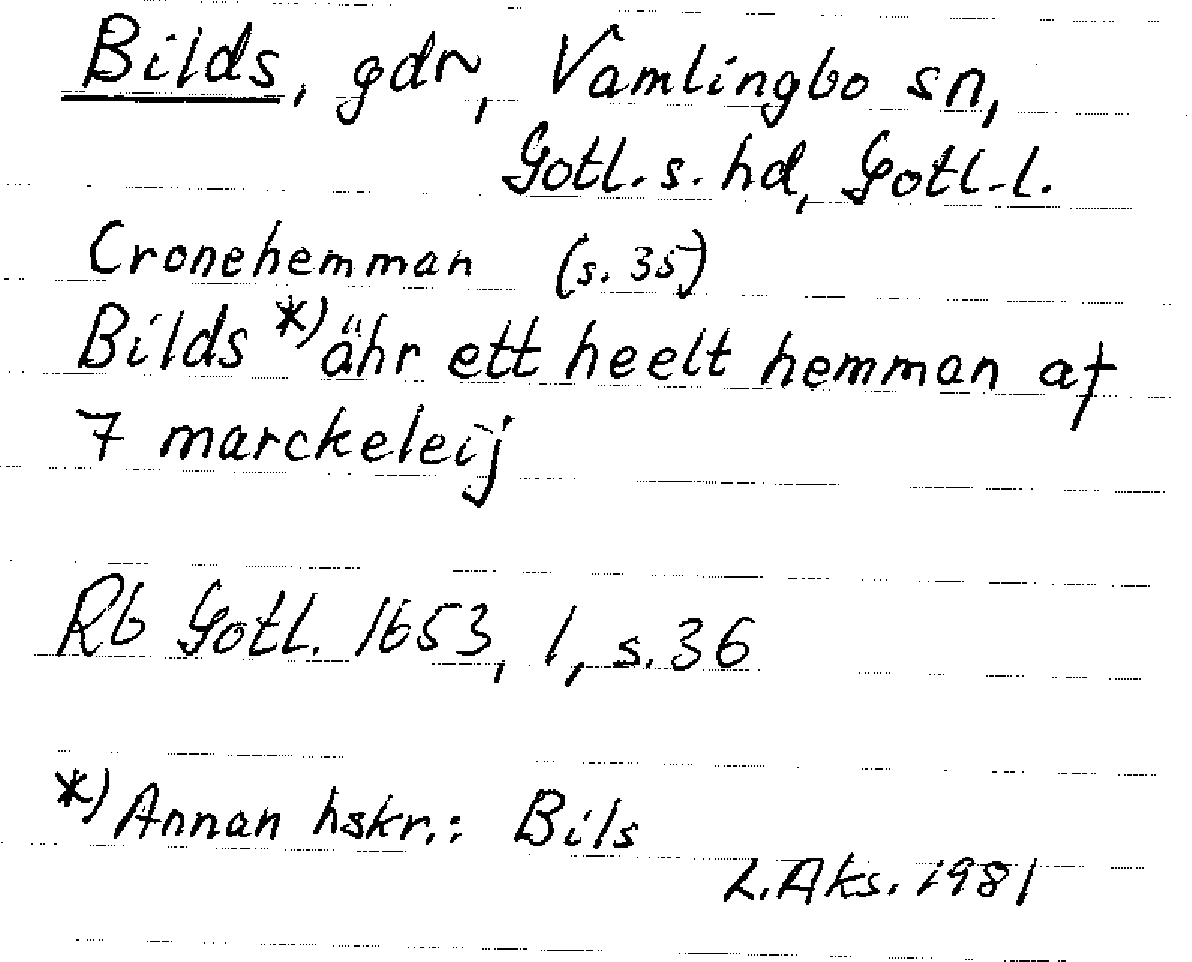 Bilds, gdr, Vamlingbo sn,
Gotl. s. hd, Gotl. l.
Cronehemman (s. 35)
Bilds *) ähr ett heelt hemman af
7 marckeleij
Rb Gotl. 1653, 1, s. 36
*) Annan hskr.: Bils
L. Aks. 1981